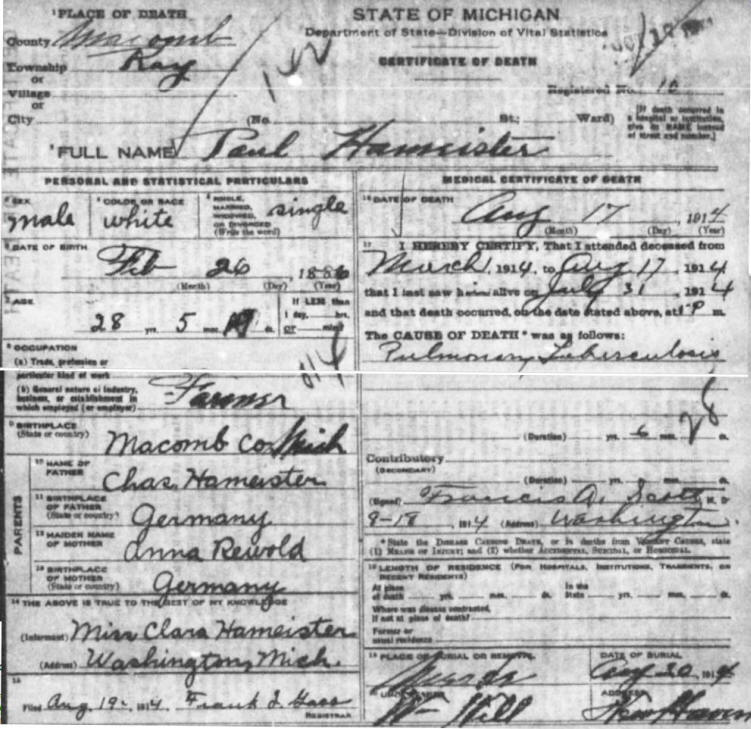 ¹PLACE OF DEATH
County Macomb
Township Ray
or
Village
or
City
142
STATE OF MICHIGAN
Department of State—Division of Vital Statistics
CERTIFICATE OF DEATH
Registered No. 10
(No. St.; Ward)
[If death occurred in a hospital or institution, give its NAME instead of street and number.]
²FULL NAME Paul Hameister
PERSONAL AND STATISTICAL PARTICULARS
³ SEX male
⁴ COLOR OR RACE white
⁵ SINGLE, MARRIED, WIDOWED, OR DIVORCED (Write the word) single
⁶ DATE OF BIRTH
Feb 26, 1886
(Month) (Day) (Year)
⁷ AGE
28 yrs. 5 mos. ds.
If LESS than 1 day, hrs. or min?
⁸ OCCUPATION
(a) Trade, profession or
particular kind of work
(b) General nature of industry,
business, or establishment in
which employed (or employer) Farmer
⁹ BIRTHPLACE
(State or country) Macomb Co. Mich
PARENTS
¹⁰ NAME OF FATHER Chas. Hameister
¹¹ BIRTHPLACE OF FATHER (State or country) Germany
¹² MAIDEN NAME OF MOTHER Anna Rewold
¹³ BIRTHPLACE OF MOTHER (State or country) Germany
¹⁴ THE ABOVE IS TRUE TO THE BEST OF MY KNOWLEDGE
(Informant) Miss Clara Hameister
(Address) Washington, Mich.
¹⁵
Filed Aug. 19-, 1914 Frank J.
REGISTRAR
MEDICAL CERTIFICATE OF DEATH
¹⁶ DATE OF DEATH
Aug 17, 1914
(Month) (Day) (Year)
¹⁷ I HEREBY CERTIFY, That I attended deceased from
March, 1914, to Aug 17, 1914
that I last saw him alive on July 31, 1914
and that death occurred, on the date stated above, at 1 P m.
The CAUSE OF DEATH* was as follows:
Pulmonary Tuberculosis
28
(Duration) yrs. 6 mos. ds.
Contributory
(SECONDARY)
(Duration) yrs. mos. ds.
(Signed) Francis A. Scott M. D
8-18, 1914 (Address) Washington
*State the DISEASE CAUSING DEATH, or in deaths from VIOLENT CAUSES, state
(1) MEANS OF INJURY; and (2) whether ACCIDENTAL, SUICIDAL, or HOMICIDAL.
¹⁸ LENGTH OF RESIDENCE (FOR HOSPITALS, INSTITUTIONS, TRANSIENTS, OR
RECENT RESIDENTS)
At place of death yrs. mos. ds. In the State yrs. mos. ds.
Where was disease contracted,
if not at place of death?
Former or
usual residence
¹⁹ PLACE OF BURIAL OR REMOVAL
DATE OF BURIAL
Aug 20, 1914
²⁰ UNDERTAKER
Wm Will
ADDRESS
New Haven